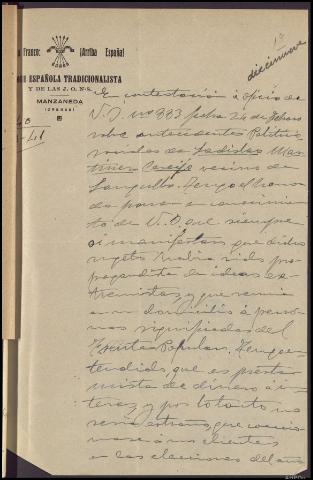 19
diecinueve
Franco: ¡Arriba España!
ESPAÑOLA TRADICIONALISTA
Y DE LAS J. O. N-S.
MANZANEDA
(ORENSE)
En contestación á oficio de
V. S. nº 883 fecha 24 de febrero
sobre antecedentes Politico
sociales de Ladislao Mar-
tinez vecino de
Langullo. Tengo el honor
de poner en conocimien-
to de V. S. que siempre
manifestado que dicho
sujeto había sido pro-
pagandista de ideas ex-
tremistas, y que reunia
en su domicilio á perso-
nas significadas del
Frente Popular. Tengo en-
tendido, que es presta-
mista de dinero á in-
teres, y por lo tanto no
seria extraño, que coaccio-
nase á sus clientes
en las elecciones del año